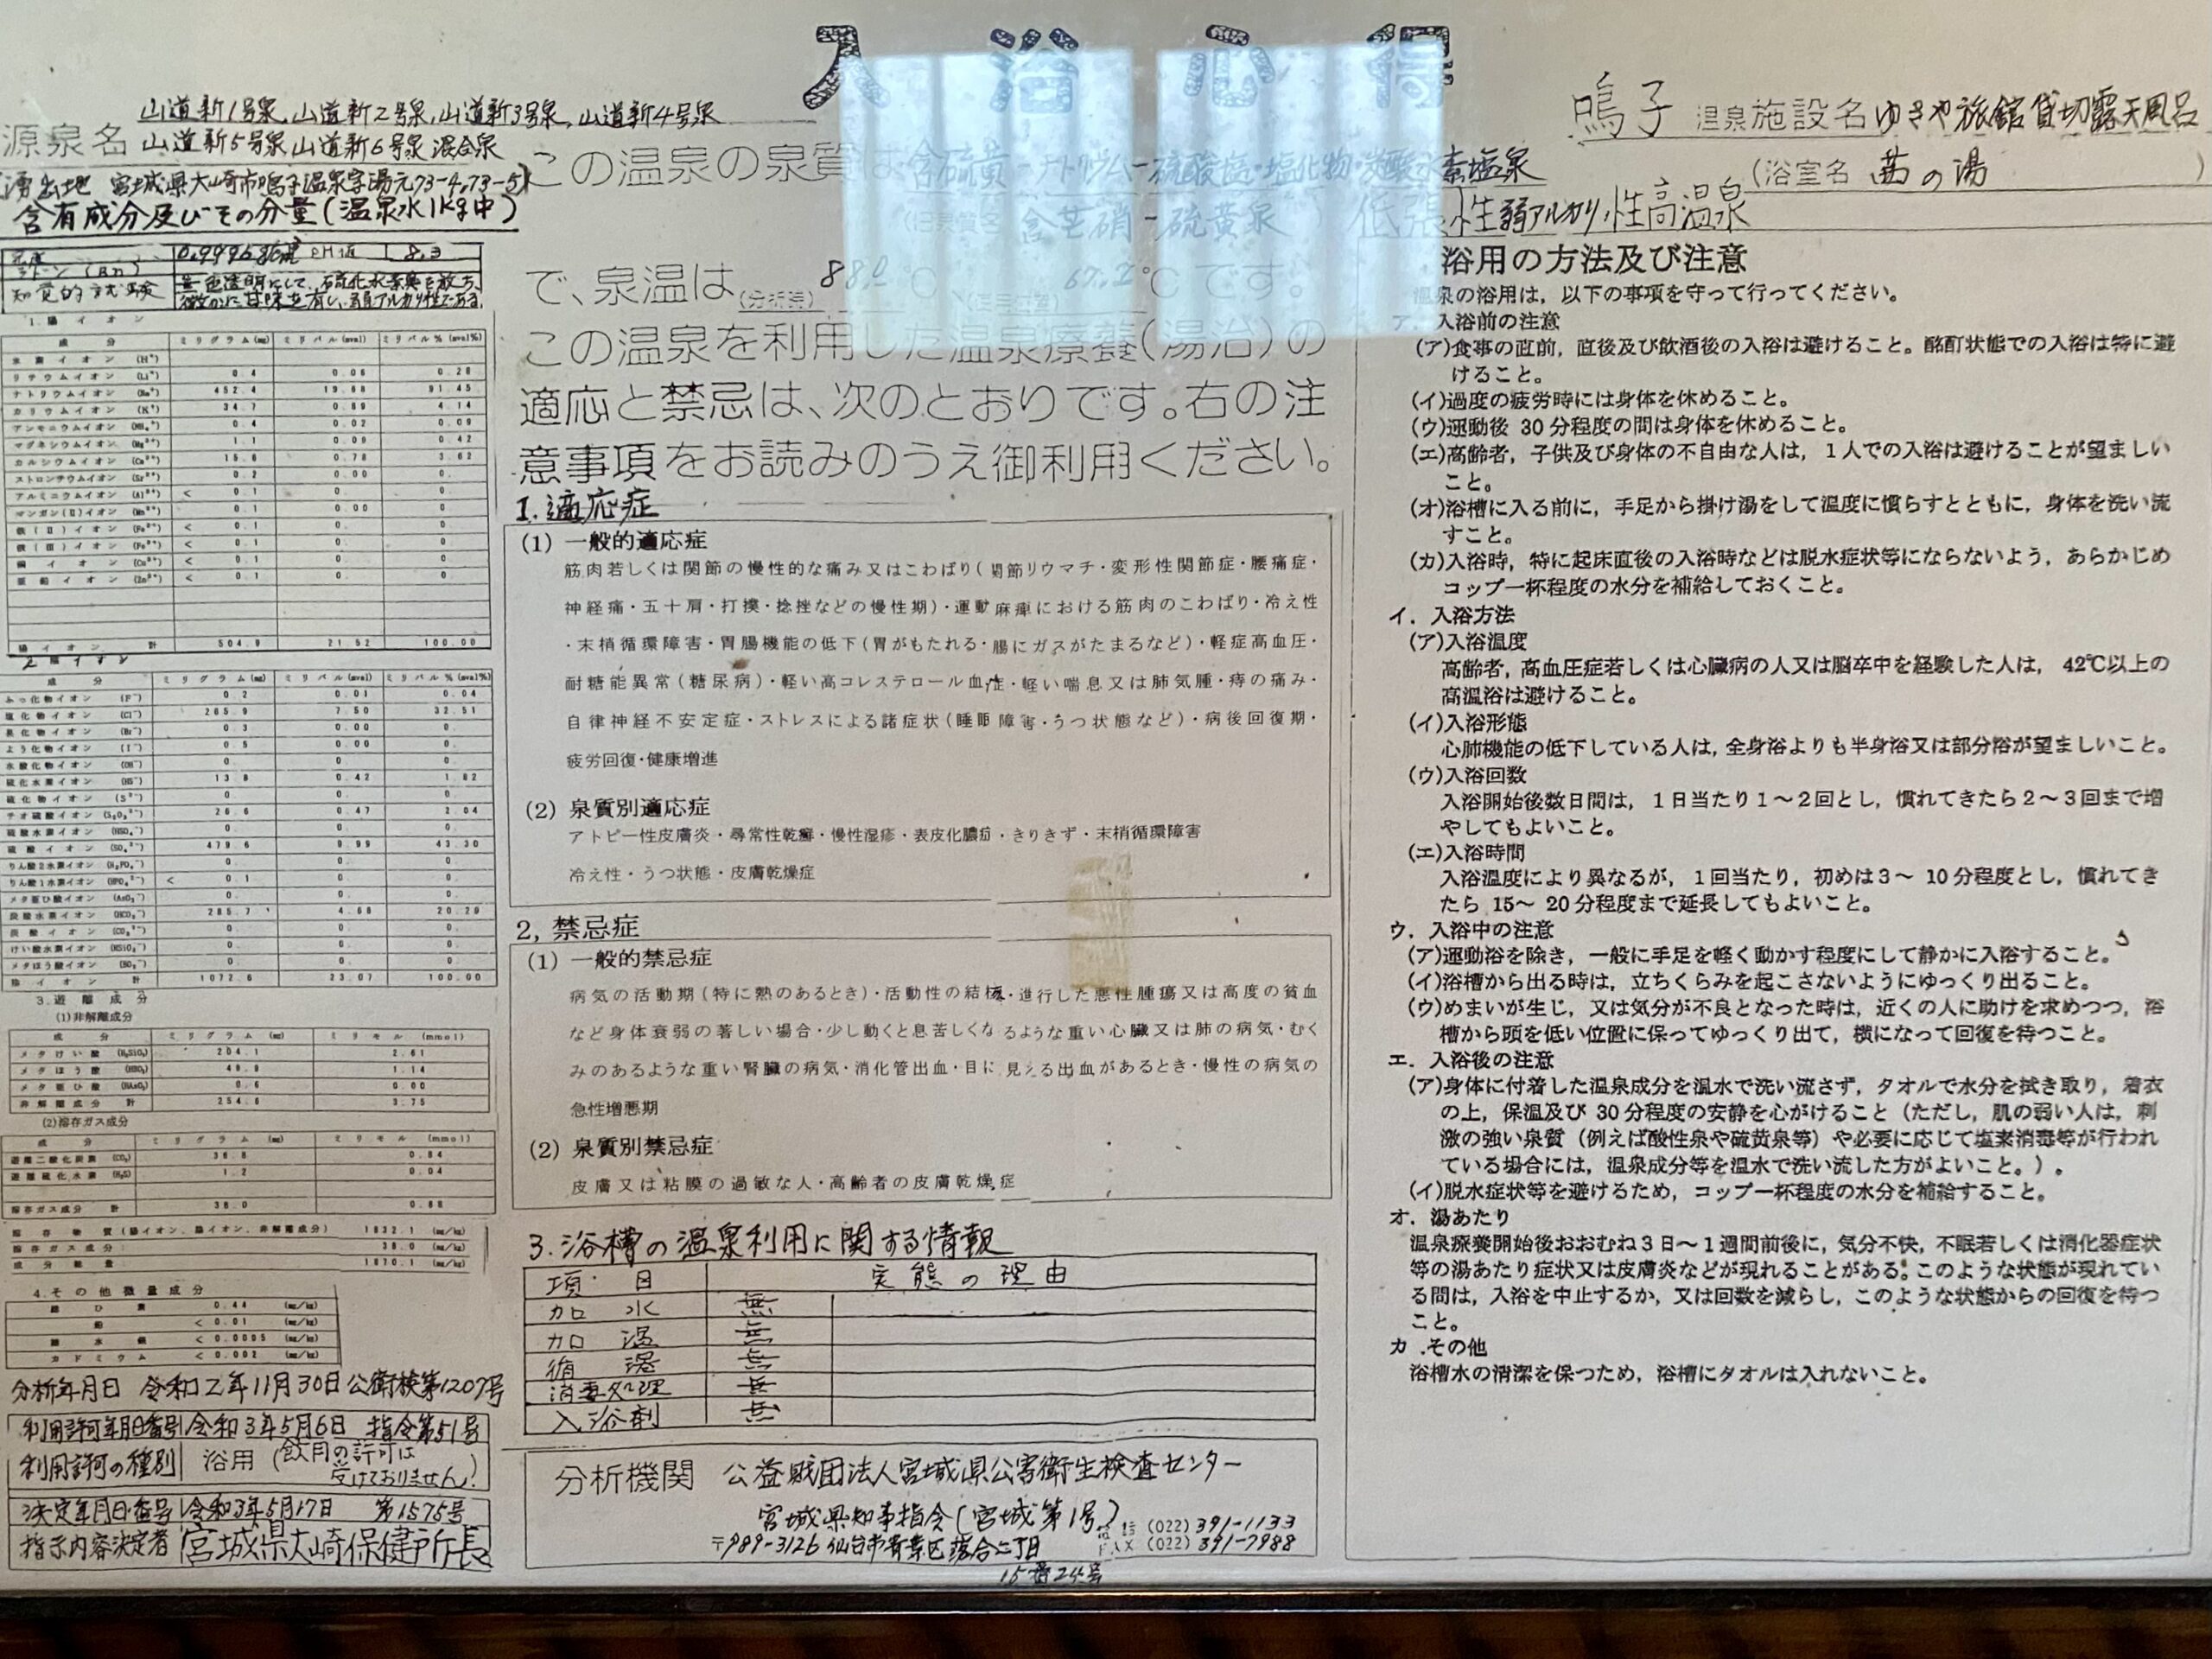 入浴心得
鳴子 温泉施設名 ゆさや旅館 貸切露天風呂
(浴室名 茜の湯 )
山道新1号泉、山道新2号泉、山道新3号泉、山道新4号泉
源泉名 山道新5号泉 山道新6号泉 混合泉
(湧出地 宮城県大崎市鳴子温泉字湯元73-4,73-5)
含有成分及びその分量(温泉水1kg中)
ラドン(Rn) PH値 8.3
知覚的試験 無色透明にして、硫化水素臭を放ち、
微かに甘味を有し、弱アルカリ性である。
1.陽イオン
成分 ミリグラム(mg) ミリバル(mval) ミリバル%(mval%)
水素イオン (H⁺)
リチウムイオン (Li⁺) 0.4 0.06 0.28
ナトリウムイオン (Na⁺) 452.4 19.68 91.45
カリウムイオン (K⁺) 34.7 0.89 4.14
アンモニウムイオン (NH₄⁺) 0.4 0.02 0.09
マグネシウムイオン (Mg²⁺) 1.1 0.09 0.42
カルシウムイオン (Ca²⁺) 15.6 0.78 3.62
ストロンチウムイオン (Sr²⁺) 0.2 0.00 0.
アルミニウムイオン (Al³⁺) < 0.1 0. 0.
マンガン(Ⅱ)イオン (Mn²⁺) 0.1 0.00 0.
鉄(Ⅱ)イオン (Fe²⁺) < 0.1 0. 0.
鉄(Ⅲ)イオン (Fe³⁺) < 0.1 0. 0.
銅イオン (Cu²⁺) < 0.1 0 0.
亜鉛イオン (Zn²⁺) < 0.1 0 0.
陽イオン 計 504.9 21.52 100.00
2.陰イオン
成分 ミリグラム(mg) ミリバル(mval) ミリバル%(mval%)
ふっ化物イオン (F⁻) 0.2 0.01 0.04
塩化物イオン (Cl⁻) 265.9 7.50 32.51
臭化物イオン (Br⁻) 0.3 0.00 0.
よう化物イオン (I⁻) 0.5 0.00 0.
水酸化物イオン (OH⁻) 0. 0. 0.
硫化水素イオン (HS⁻) 13.8 0.42 1.82
硫化物イオン (S²⁻) 0. 0. 0.
チオ硫酸イオン (S₂O₃²⁻) 26.6 0.47 2.04
硫酸水素イオン (HSO₄⁻) 0. 0. 0.
硫酸イオン (SO₄²⁻) 479.6 9.99 43.30
りん酸2水素イオン (H₂PO₄⁻) 0. 0. 0.
りん酸1水素イオン (HPO₄²⁻) < 0.1 0. 0.
メタ亜ひ酸イオン (AsO₂⁻) 0. 0. 0.
炭酸水素イオン (HCO₃⁻) 285.7 4.68 20.29
炭酸イオン (CO₃²⁻) 0. 0. 0.
けい酸水素イオン (HSiO₃⁻) 0. 0. 0.
メタほう酸イオン (BO₂⁻) 0. 0. 0.
陰イオン 計 1072.6 23.07 100.00
3.遊離成分
(1)非解離成分
成分 ミリグラム(mg) ミリモル(mmol)
メタけい酸 (H₂SiO₃) 204.1 2.61
メタほう酸 (HBO₂) 49.9 1.14
メタ亜ひ酸 (HAsO₂) 0.6 0.00
非解離成分 計 254.6 3.75
(2)溶存ガス成分
成分 ミリグラム(mg) ミリモル(mmol)
遊離二酸化炭素 (CO₂) 36.8 0.84
遊離硫化水素 (H₂S) 1.2 0.04
溶存ガス成分 計 38.0 0.88
溶存物質(陽イオン、陰イオン、非解離成分) 1832.1 (mg/kg)
溶存ガス成分: 38.0 (mg/kg)
成分総量: 1870.1 (mg/kg)
4.その他微量成分
総ひ素 0.44 (mg/kg)
鉛 < 0.01 (mg/kg)
総水銀 < 0.0005 (mg/kg)
カドミウム < 0.002 (mg/kg)
分析年月日 令和2年11月30日 公衛検第1207号
利用許可年月日番号 令和3年5月6日 指令第51号
利用許可の種別 浴用(飲用の許可は
受けておりません)
決定年月日番号 令和3年5月17日 第1575号
指示内容決定者 宮城県大崎保健所長
この温泉の泉質は含硫黄-ナトリウム-硫酸塩・塩化物・炭酸水素塩泉
(旧泉質名 含芒硝-硫黄泉 ) 低張性弱アルカリ性高温泉
で、泉温は(分析時) 88.0℃、 67.2℃です。
この温泉を利用した温泉療養(湯治)の
適応と禁忌は、次のとおりです。右の注
意事項をお読みのうえ御利用ください。
1.適応症
(1) 一般的適応症
筋肉若しくは関節の慢性的な痛み又はこわばり(関節リウマチ・変形性関節症・腰痛症・
神経痛・五十肩・打撲・捻挫などの慢性期)・運動麻痺における筋肉のこわばり・冷え性
・末梢循環障害・胃腸機能の低下(胃がもたれる・腸にガスがたまるなど)・軽症高血圧・
耐糖能異常(糖尿病)・軽い高コレステロール血症・軽い喘息又は肺気腫・痔の痛み・
自律神経不安定症・ストレスによる諸症状(睡眠障害・うつ状態など)・病後回復期・
疲労回復・健康増進
(2) 泉質別適応症
アトピー性皮膚炎・尋常性乾癬・慢性湿疹・表皮化膿症・きりきず・末梢循環障害
冷え性・うつ状態・皮膚乾燥症
2,禁忌症
(1) 一般的禁忌症
病気の活動期(特に熱のあるとき)・活動性の結核・進行した悪性腫瘍又は高度の貧血
など身体衰弱の著しい場合・少し動くと息苦しくなるような重い心臓又は肺の病気・むく
みのあるような重い腎臓の病気・消化管出血・目に見える出血があるとき・慢性の病気の
急性増悪期
(2) 泉質別禁忌症
皮膚又は粘膜の過敏な人・高齢者の皮膚乾燥症
3.浴槽の温泉利用に関する情報
項目 実態の理由
加水 無
加温 無
循環 無
消毒処理 無
入浴剤 無
分析機関 公益財団法人宮城県公害衛生検査センター
宮城県知事指令(宮城第1号)
電話 (022)391-1133
〒989-3126 仙台市青葉区落合二丁目 FAX (022)391-7988
15番24号
浴用の方法及び注意
温泉の浴用は,以下の事項を守って行ってください。
ア.入浴前の注意
(ア)食事の直前,直後及び飲酒後の入浴は避けること。酩酊状態での入浴は特に避
けること。
(イ)過度の疲労時には身体を休めること。
(ウ)運動後 30分程度の間は身体を休めること。
(エ)高齢者,子供及び身体の不自由な人は,1人での入浴は避けることが望ましい
こと。
(オ)浴槽に入る前に,手足から掛け湯をして温度に慣らすとともに,身体を洗い流
すこと。
(カ)入浴時,特に起床直後の入浴時などは脱水症状等にならないよう,あらかじめ
コップ一杯程度の水分を補給しておくこと。
イ.入浴方法
(ア)入浴温度
高齢者,高血圧症若しくは心臓病の人又は脳卒中を経験した人は,42℃以上の
高温浴は避けること。
(イ)入浴形態
心肺機能の低下している人は,全身浴よりも半身浴又は部分浴が望ましいこと。
(ウ)入浴回数
入浴開始後数日間は,1日当たり1~2回とし,慣れてきたら2~3回まで増
やしてもよいこと。
(エ)入浴時間
入浴温度により異なるが,1回当たり,初めは3~ 10分程度とし,慣れてき
たら 15~ 20分程度まで延長してもよいこと。
ウ.入浴中の注意
(ア)運動浴を除き,一般に手足を軽く動かす程度にして静かに入浴すること。
(イ)浴槽から出る時は,立ちくらみを起こさないようにゆっくり出ること。
(ウ)めまいが生じ,又は気分が不良となった時は,近くの人に助けを求めつつ,浴
槽から頭を低い位置に保ってゆっくり出て,横になって回復を待つこと。
エ.入浴後の注意
(ア)身体に付着した温泉成分を温水で洗い流さず,タオルで水分を拭き取り,着衣
の上,保温及び 30分程度の安静を心がけること(ただし,肌の弱い人は,刺
激の強い泉質(例えば酸性泉や硫黄泉等)や必要に応じて塩素消毒等が行われ
ている場合には,温泉成分等を温水で洗い流した方がよいこと。)。
(イ)脱水症状等を避けるため,コップ一杯程度の水分を補給すること。
オ.湯あたり
温泉療養開始後おおむね3日~1週間前後に,気分不快,不眠若しくは消化器症状
等の湯あたり症状又は皮膚炎などが現れることがある。このような状態が現れてい
る間は,入浴を中止するか,又は回数を減らし,このような状態からの回復を待つ
こと。
カ.その他
浴槽水の清潔を保つため,浴槽にタオルは入れないこと。